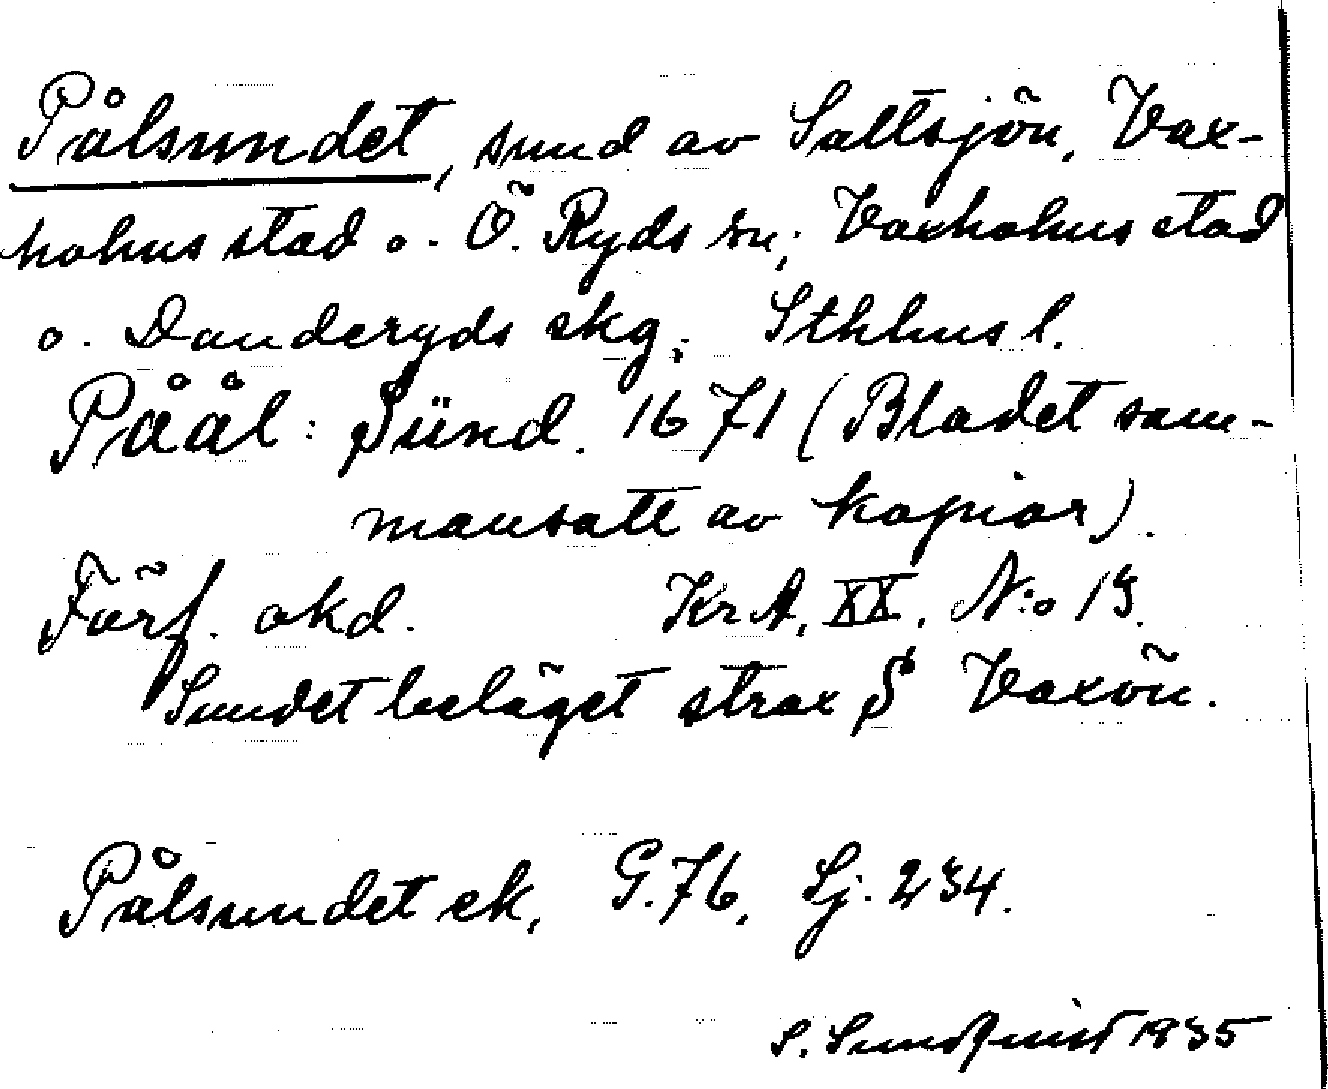 Pålsundet, sund av Saltsjön, Vax-
holms stad o. Ö. Ryds sn; Vaxholms stad
o. Danderyds skg, Sthlms l.
Pååls: Sünd. 1671 (Bladet sam-
mansatt av kopior).
Förf. okd. KrA, XX, N:o 13.
Sundet beläget strax S Vaxön.
Pålsundet ek, G.76, Sj. 234.
S. Sundquist 1935